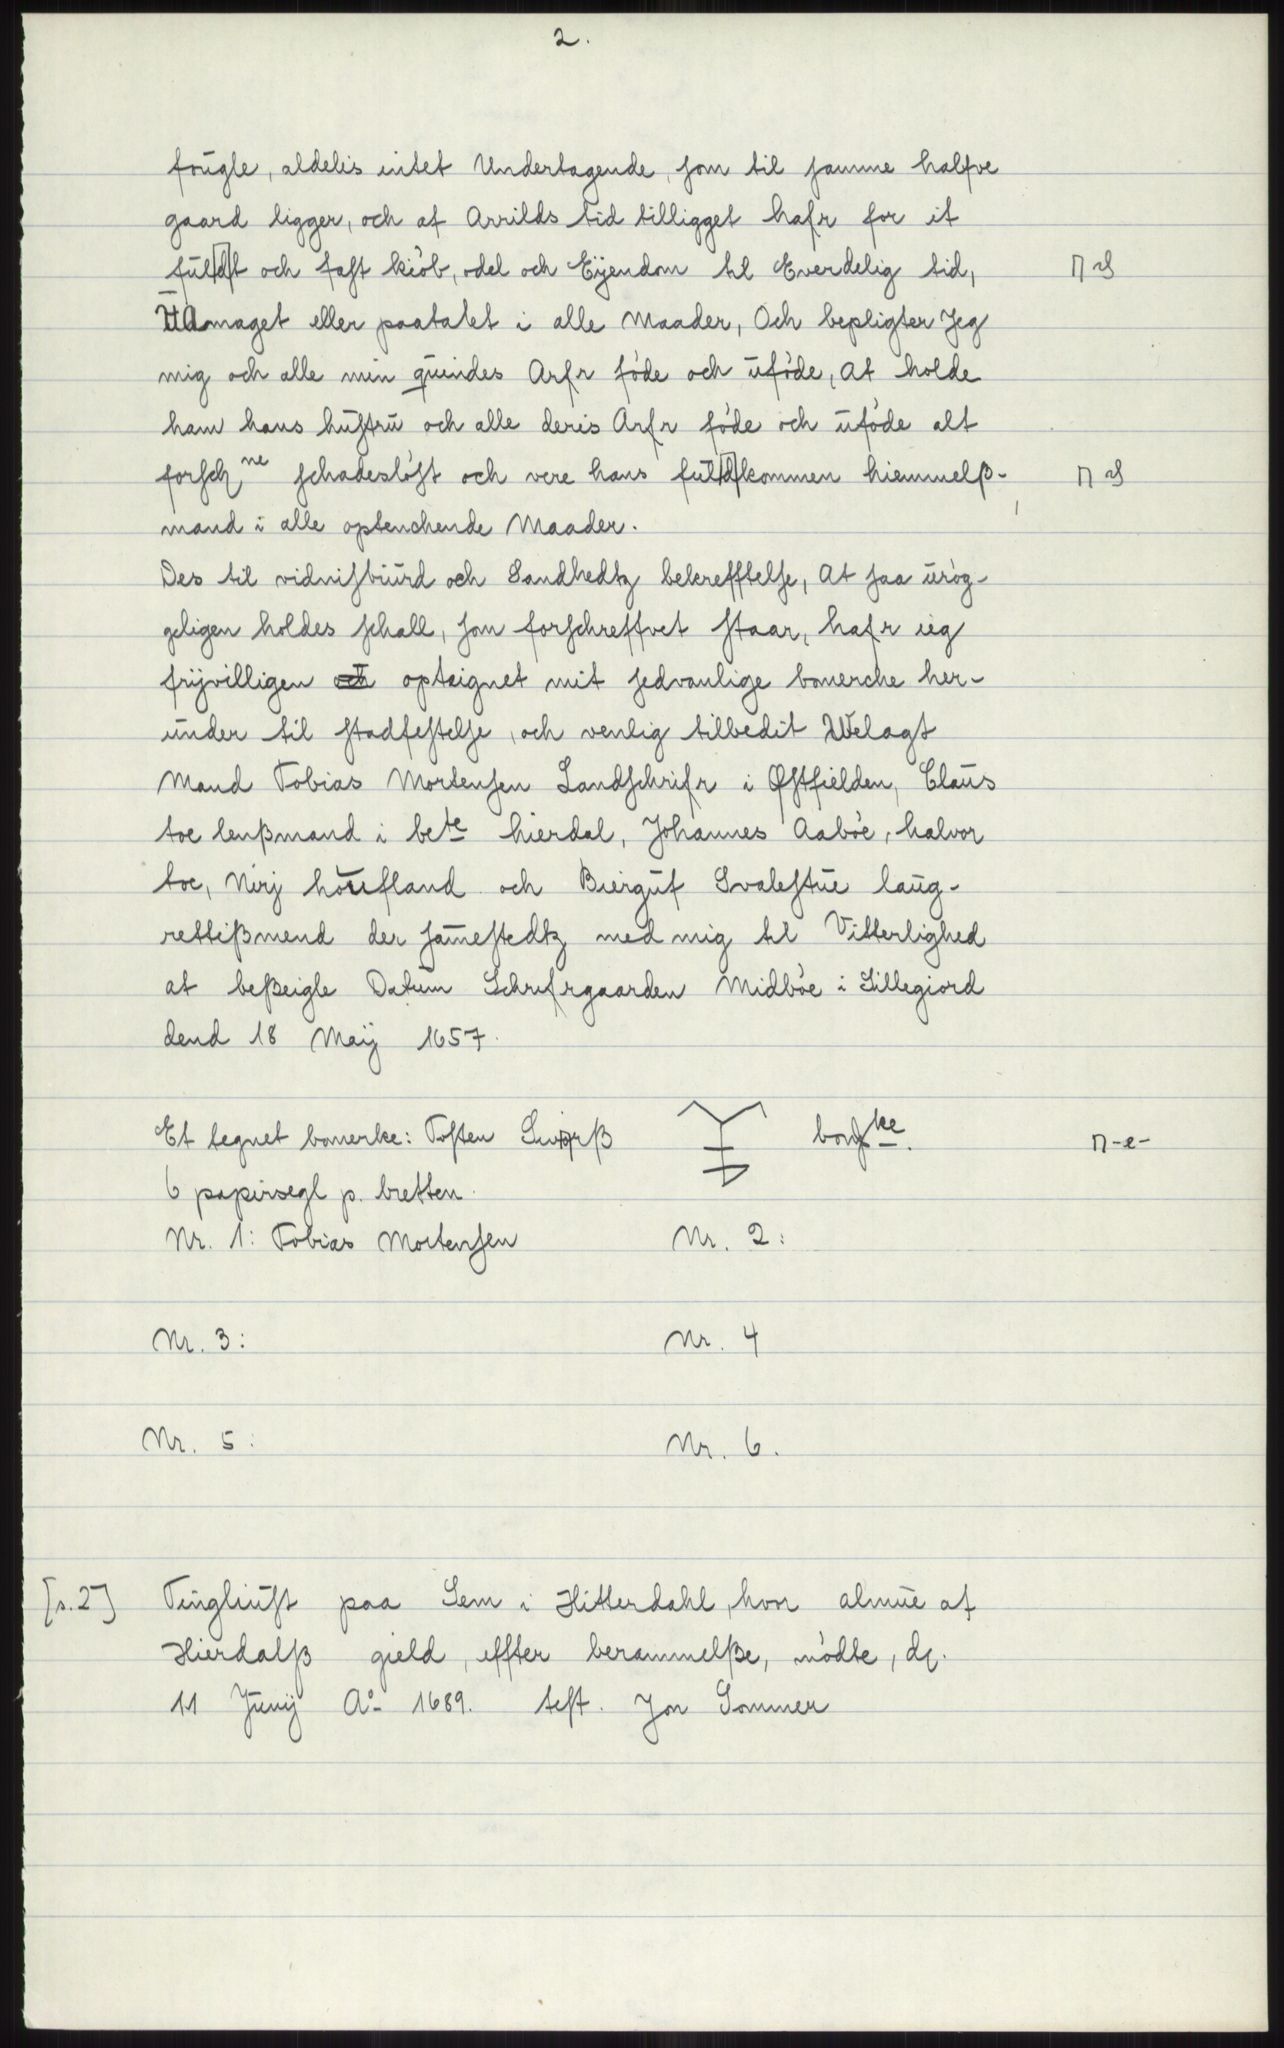 2.
fougle, aldelis intet Undertagende, som til samme halfve
gaard ligger, och af Arrilds tid tilligget hafr for it
fuldt och fast kiöb, odel och Eyendom til Everdelig tid,
Uamaget eller paatalet i alle Maader, Och bepligter Jeg
mig och alle min quindes Arfr föde och uföde, At holde
ham hans hustru och alle deris Arfr föde och uföde alt
forsch ne schadeslöst och vere hans fuldkommen hiemmelß-
mand i alle optenchende Maader.
Des til vidnisburd och Sandhedtz bekrefftelse, At saa urög-
geligen holdes schall, som forschreffvet staar, hafr ieg
frÿvilligen och opteignet mit sedvanlige bomerche her-
under til stadfestelse, och venlig tilbedit Welagt
Mand Tobias Mortensen Landschrifr i Østfielden, Claus
toe lenßmand i bete hierdal, Johannes Aaböe, halvor
toe, Nirj höufland och Biergúf Svalestue laug-
rettißmend der samestedtz med mig til Vitterlighed
at beßeigle Datum Schrifrgaarden Midböe i Sillegiord
dend 18 Maÿ 1657.
Et tegnet bomerke: Tosten ke.
6 papirsegl p. bretten.
Nr. 1: Tobias Mortensen Nr. 2:
Nr. 3: Nr. 4
Nr. 5: Nr. 6.
[s.2] Tingliust paa Sem i Hitterdahl, hvor almue af
Hierdalß gield, effter berammelße, mödte, d.
11 Junÿ Ao 1689. test. Jon Sommer